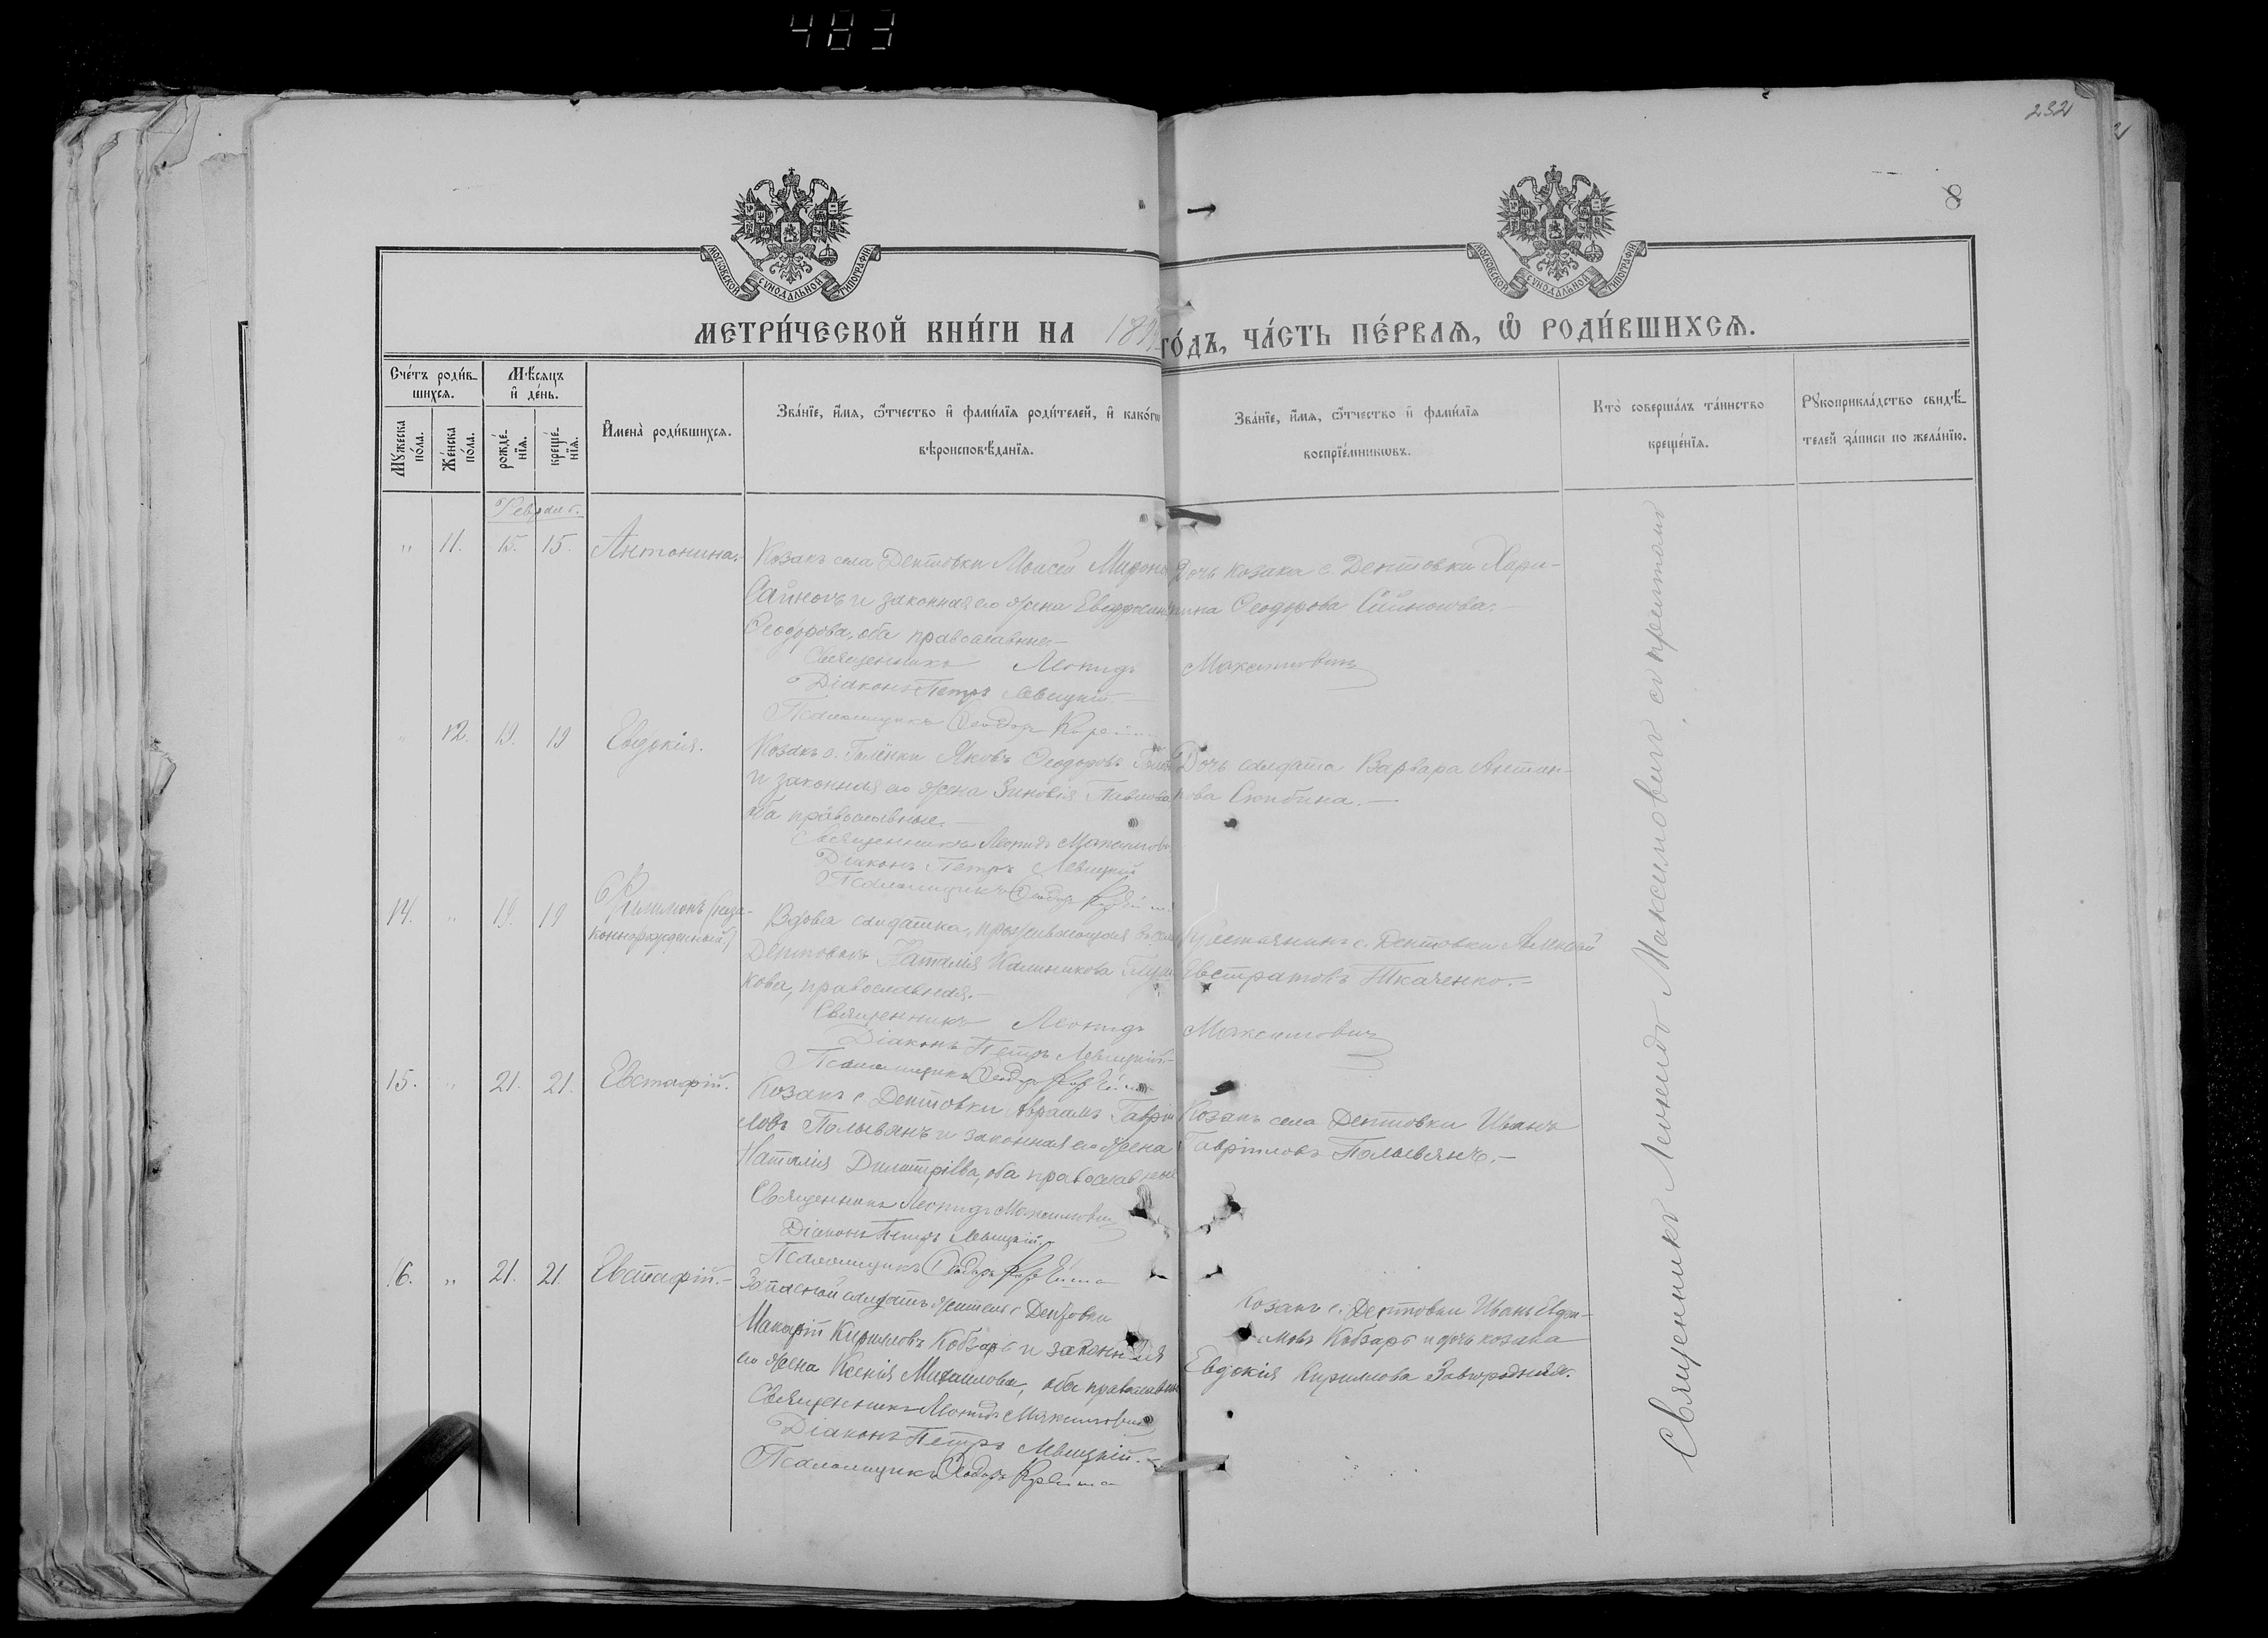 483
232
8
МОСКОВСКОЙ СѴНОДАЛЬНОЙ ТИПОГРАФІИ
МОСКОВСКОЙ СѴНОДАЛЬНОЙ ТИПОГРАФІИ
МЕТРИ́ЧЕСКОЙ КНИ́ГИ НА 189
ГО́ДЪ, ЧА́СТЬ ПЕ́РВАѦ, Ѿ РОДИ́ВШИХСѦ.
Сче́тъ роди́в-
шихсѧ.
Мꙋ́жеска по́ла.
Же́нска по́ла.
Мѣ́сяцъ
и҆ де́нь.
рожде́-
нїѧ.
креще́-
нїѧ.
И҆мена̀ роди́вшихсѧ.
Зва́нїе, и҆́мѧ, ѻ҆́тчество и҆ фами́лїѧ роди́телей, и҆ како́гѡ
вѣроисповѣ́данїѧ.
Зва́нїе, и҆́мѧ, ѻ҆́тчество и҆ фами́лїѧ
воспрїе́мникѡвъ.
Кто̀ соверша́лъ та́инство
креще́нїѧ.
Рꙋкоприкла́дство свидѣ́-
телей за́писи по жела́нїю.
Февраль.
" 11. 15. 15. Антонина.
Козакъ села Дептовки Моисей
и законная его жена
Ѳеодорова, оба православные.
Священникъ Леонидъ Максимовичъ
Діаконъ Петръ Левицкій.
Псаломщикъ Ѳеодоръ
Дочь козака с. Дептовки Хари-
тина Ѳеодорова
" 12. 19. 19 Евдокія.
Козакъ с. Голенки Яковъ Ѳеодоровъ
и законная его жена Зиновія Павлова
оба православные.
Священникъ Леонидъ Максимович
Діаконъ Петръ Левицкій
Псаломщикъ Ѳеодоръ
Дочь солдата Варвара Антип-
никова
14. " 19. 19 Филимонъ (неза-
коннорожденный)
Вдова солдатка, проживающая въ селѣ
Дептовкѣ Наталія Калиникова
кова, православная.
Священникъ Леонидъ Максимовичъ
Діаконъ Петръ Левицкій.
Псаломщикъ Ѳеодоръ
Крестьянинъ с. Дептовки Алексѣй
Евстратовъ Ткаченко.
15. " 21. 21. Евстафій.
Козакъ с Дептовки Авраамъ Гаврии
ловъ Полывянъ и законная его жена
Наталія Димитріева, оба православные
Священникъ Леонидъ Максимович
Діаконъ Петръ Левицкій.
Псаломщикъ Ѳеодоръ
Козакъ села Дептовки Иванъ
Гавріиловъ Полывянъ.
16. " 21. 21. Евстафій.
Запасной солдатъ житель с Дептовки
Макарій Кириловъ Кобзарь и законная
его жена Ксенія Михаилова, оба православные
Священникъ Леонидъ Максимович
Діаконъ Петръ Левицкій.
Псаломщикъ Ѳеодоръ
Козакъ с. Дептовки Иванъ
Кобзарь и дочь козака
Евдокія Кирилова Завгородняя.
Священникъ Леонидъ Максимовичъ съ причтомъ